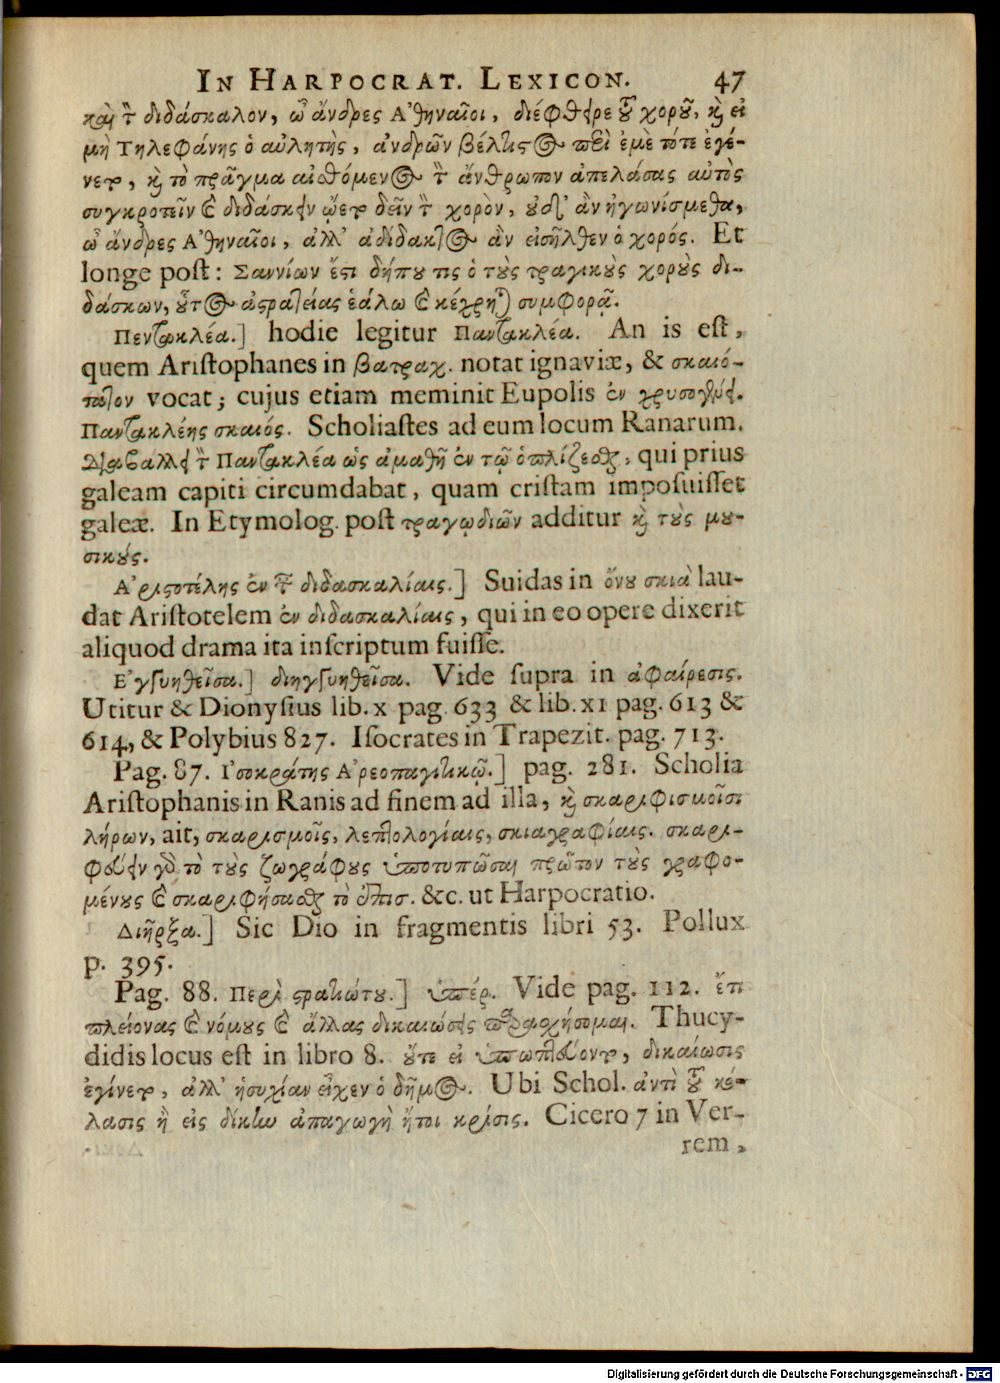 IN HARPOCRAT. LEXICON. 47
καὶ τ̀ διδάσκαλον, ὦ ἄνδρες Ἀθηναῖοι, διέφθειρε τοῦ χοροῦ, καὶ εἰ
μὴ Τηλεφάνης ὁ αὐλητὴς, ἀνδρῶν βέλτιστος περὶ ἐμὲ τότε ἐγέ-
νετο, καὶ τὸ πρᾶγμα αἰσθόμενος τὸν ἄνθρωπον ἀπελάσας αὐτὸς
συγκροτεῖν καὶ διδάσκειν ᾤετο δεῖν τὸν χορὸν, οὐδ' ἂν ἠγωνίσμεθα,
ὦ ἄνδρες Ἀθηναῖοι, ἀλλ' ἀδίδακτος ἂν εἰσῆλθεν ὁ χορός. Et
longe post: Σαννίων ἔστι δήπου τις ὁ τοὺς τραγικοὺς χοροὺς δι-
δάσκων, οὗτος ἀστρατείας ἑάλω καὶ κέχρηται συμφορᾷ.
Πεντακλέα.] hodie legitur Παντακλέα. An is est,
quem Aristophanes in βατραχ. notat ignaviæ, & σκαιό-
τατον vocat; cujus etiam meminit Eupolis ἐν χρυσογένει.
Παντακλέης σκαιός. Scholiastes ad eum locum Ranarum.
Διαβάλλει τὸν Παντακλέα ὡς ἀμαθῆ ἐν τῷ ὁπλίζεσθαι, qui prius
galeam capiti circumdabat, quam cristam imposuisset
galeæ. In Etymolog. post τραγῳδιῶν additur καὶ τοὺς μου-
σικούς.
Ἀριστοτέλης ἐν ταῖς διδασκαλίαις.] Suidas in ὄνου σκιὰ lau-
dat Aristotelem ἐν διδασκαλίαις, qui in eo opere dixerit
aliquod drama ita inscriptum fuisse.
Ἐγγυηθεῖσα.] διηγγυηθεῖσα. Vide supra in ἀφαίρεσις.
Utitur & Dionysius lib. x pag. 633 & lib. XI pag. 613 &
614, & Polybius 827. Isocrates in Trapezit. pag. 713.
Pag. 87. Ἰσοκράτης Ἀρεοπαγιτικῷ.] pag. 281. Scholia
Aristophanis in Ranis ad finem ad illa, καὶ σκαριφισμοῖσι
λήρων, ait, σκαρισμοῖς, λεπτολογίαις, σκιαγραφίαις. σκαρι-
φεύειν γὰρ τὸ τοὺς ζωγράφους ὑποτυπῶσαι πρῶτον τοὺς γραφο-
μένους καὶ σκαριφήσασθαι τὸ ἐπισ. &c. ut Harpocratio.
Διῆρξα.] Sic Dio in fragmentis libri 53. Pollux
p. 395.
Pag. 88. Περὶ στρατιώτου.] ὑπέρ. Vide pag. 112. ἔτι
πλείονας καὶ νόμους καὶ ἄλλας δικαιώσεις παρασχήσομαι. Thucy-
didis locus est in libro 8. οὔτε εἰ ὑποπτεύοντο, δικαίωσις
ἐγίνετο, ἀλλ' ἡσυχίαν εἶχεν ὁ δῆμος. Ubi Schol. ἀντὶ τοῦ κό-
λασις ἢ εἰς δίκην ἀπαγωγὴ ἤτοι κρίσις. Cicero 7 in Ver-
rem,
Digitalisierung gefördert durch die Deutsche Forschungsgemeinschaft - DFG